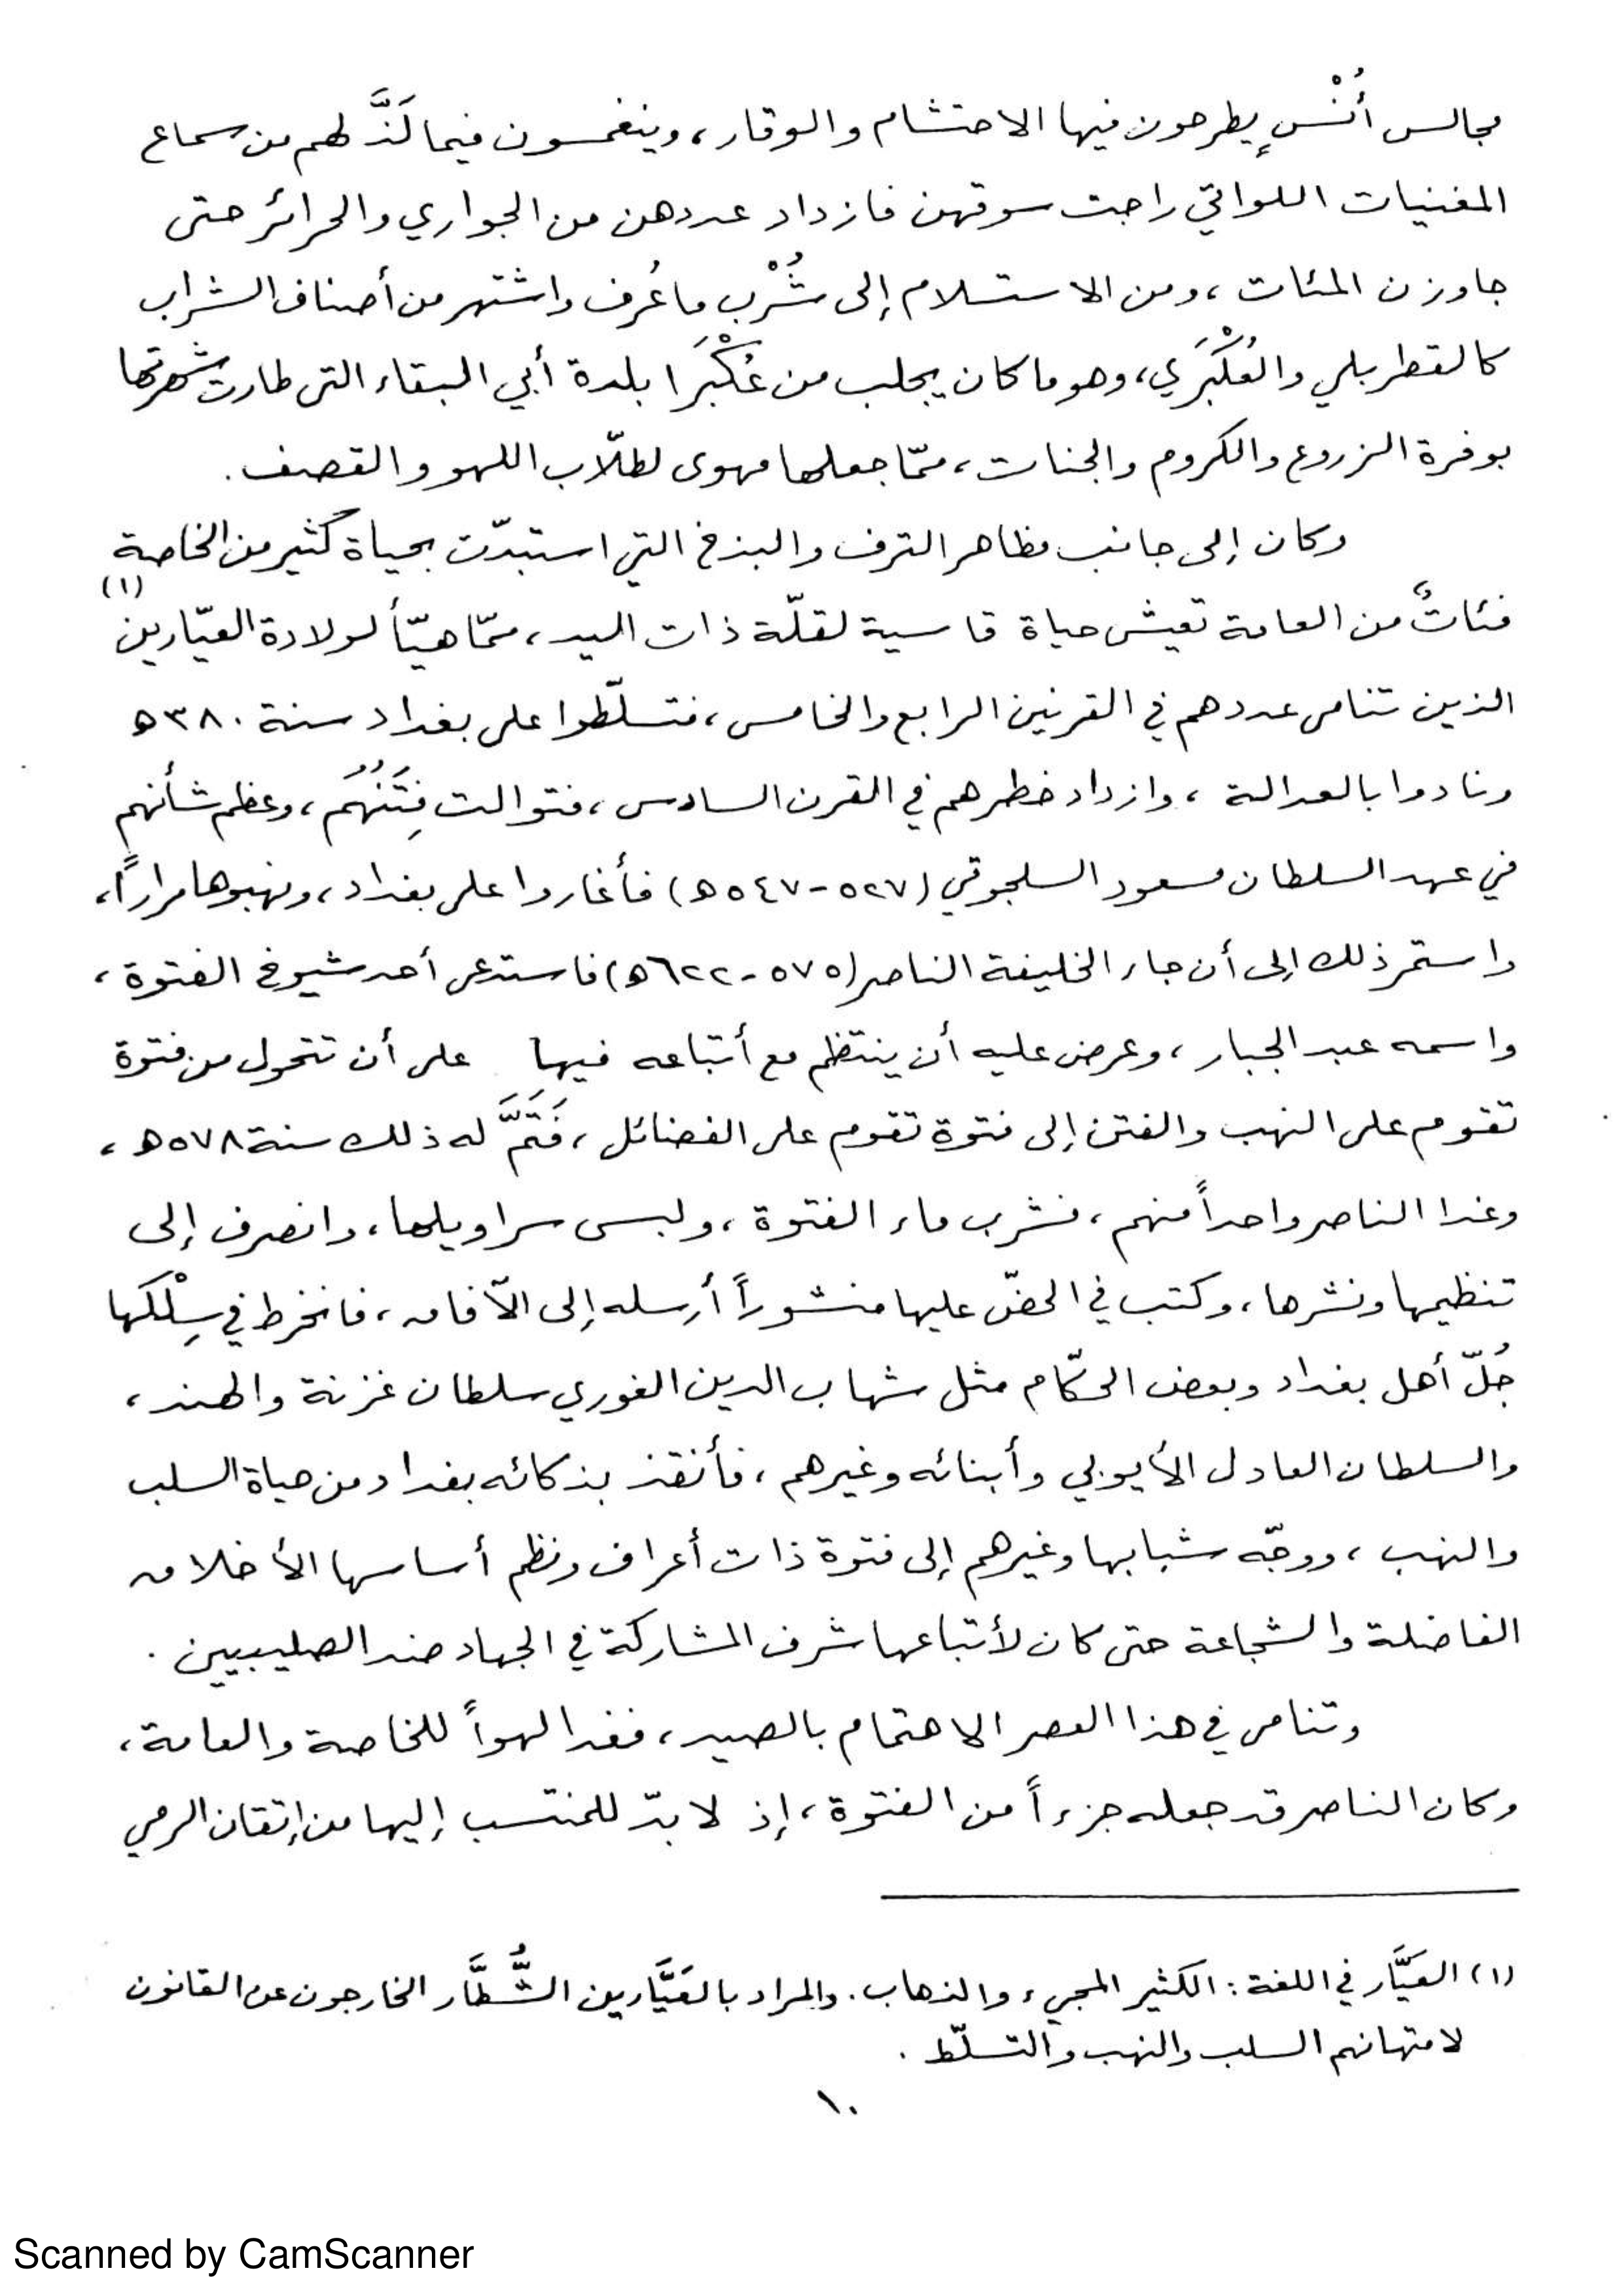 مجالس أُنْسٍ يطرحون فيها الاحتشام والوقار، وينغمسون فيما لَذَّ لهم من سماع
المغنيات اللواتي راجت سوقهن فازداد عددهن من الجواري والحرائر حتى
جاوزن المئات، ومن الاستسلام إلى شُرْب ما عُرف واشتهر من أصناف الشراب
كالقطربلي والعُكْبَري، وهو ما كان يجلب من عُكْبَرَا بلدة أبي البقاء التي طارت شهرتها
بوفرة الزروع والكروم والجنات، ممّا جعلها مهوى لطلّاب اللهو والقصف.
وكان إلى جانب مظاهر الترف والبذخ التي استبدّت بحياة كثير من الخاصة
فئاتٌ من العامة تعيش حياة قاسية لقلّة ذات اليد، ممّا هيّأ لولادة العيّارين (١)
الذين تنامى عددهم في القرنين الرابع والخامس، فتسلّطوا على بغداد سنة ٣٨٠ه
ونادوا بالعدالة، وازداد خطرهم في القرن السادس، فتوالت فِتَنُهُم، وعظم شأنهم
في عهد السلطان مسعود السلجوقي (٥٢٧-٥٤٧ه) فأغاروا على بغداد، ونهبوها مراراً،
واستمر ذلك إلى أن جاء الخليفة الناصر (٥٧٥-٦٢٢ه) فاستدعى أحد شيوخ الفتوة،
واسمه عبد الجبار، وعرض عليه أن ينتظم مع أتباعه فيها على أن تتحول من فتوة
تقوم على النهب والفتن إلى فتوة تقوم على الفضائل، فَتَمَّ له ذلك سنة ٥٧٨ه،
وغدا الناصر واحداً منهم، فشرب ماء الفتوة، ولبس سراويلها، وانصرف إلى
تنظيمها ونشرها، وكتب في الحضّ عليها منشوراً أرسله إلى الآفاق، فانخرط في سِلْكها
جُلّ أهل بغداد وبعض الحكّام مثل شهاب الدين الغوري سلطان غزنة والهند،
والسلطان العادل الأيوبي وأبنائه وغيرهم، فأنقذ بذكائه بغداد من حياة السلب
والنهب، ووجّه شبابها وغيرهم إلى فتوة ذات أعراف ونظم أساسها الأخلاق
الفاضلة والشجاعة حتى كان لأتباعها شرف المشاركة في الجهاد ضد الصليبيين.
وتنامى في هذا العصر الاهتمام بالصيد، فغدا لهواً للخاصة والعامة،
وكان الناصر قد جعله جزءاً من الفتوة، إذ لا بدّ للمنتسب إليها من إتقان الرمي
(١) العيَّار في اللغة: الكثير المجيء والذهاب. والمراد بالعَيَّارين الشُّطَّار الخارجون عن القانون
لامتهانهم السلب والنهب والتسلّط.
١٠
Scanned by CamScanner